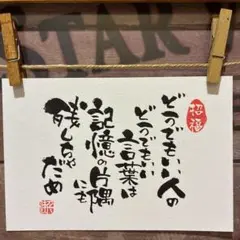 招福
どうでもいい人の
どうでもいい
言葉は
記憶の片隅にも
残しちゃ
だめ
STAR